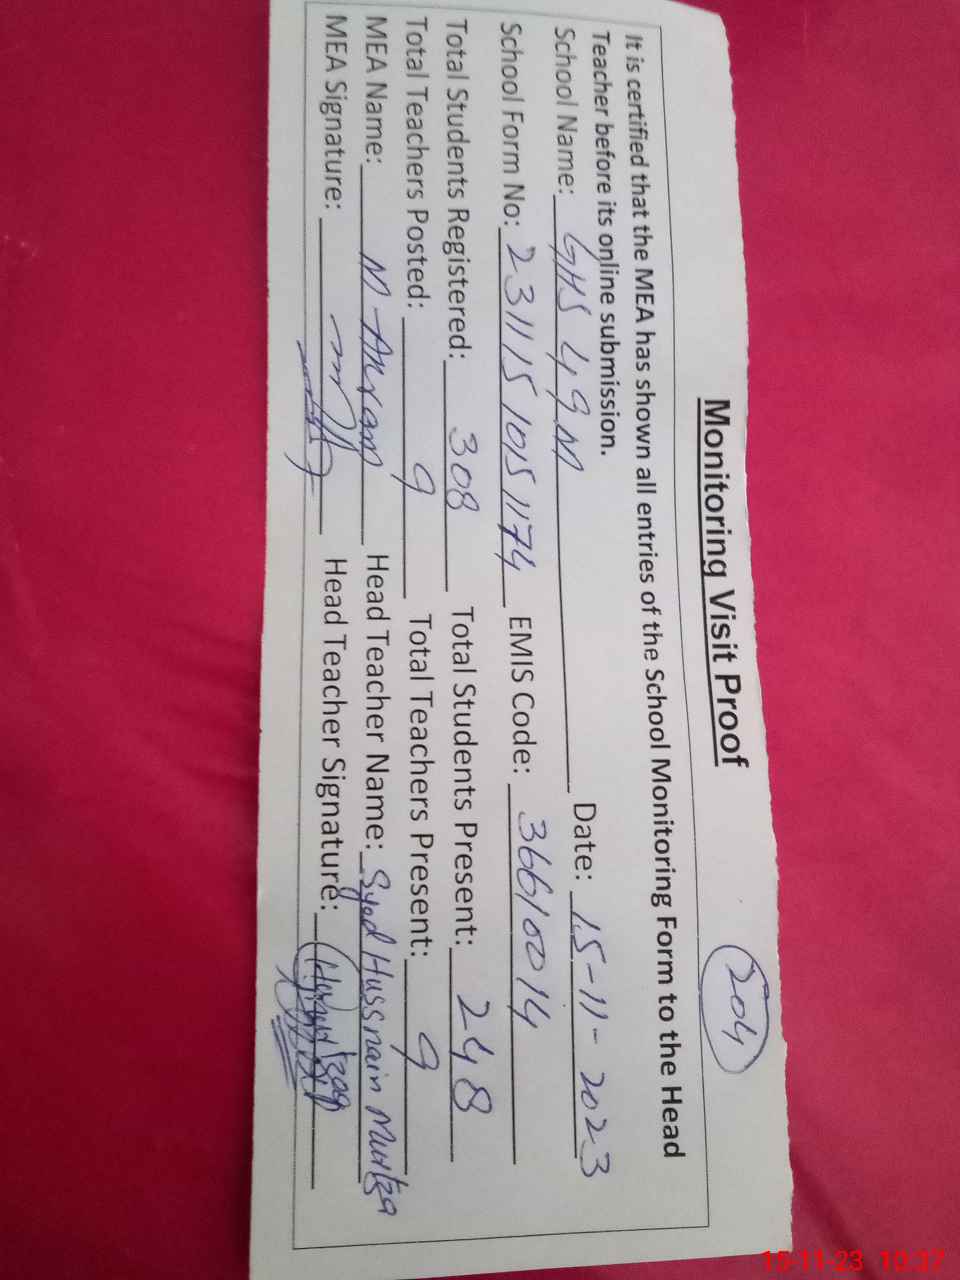 Monitoring Visit Proof
204
It is certified that the MEA has shown all entries of the School Monitoring Form to the Head
Teacher before its online submission.
School Name: GHS 49M Date: 15-11-2023
School Form No: 231115 1015 1174 EMIS Code: 36610014
Total Students Registered: 308 Total Students Present: 248
Total Teachers Posted: 9 Total Teachers Present: 9
MEA Name: M Akram Head Teacher Name: Syed Hussnain Murtza
MEA Signature: Head Teacher Signature:
15-11-23 10:37